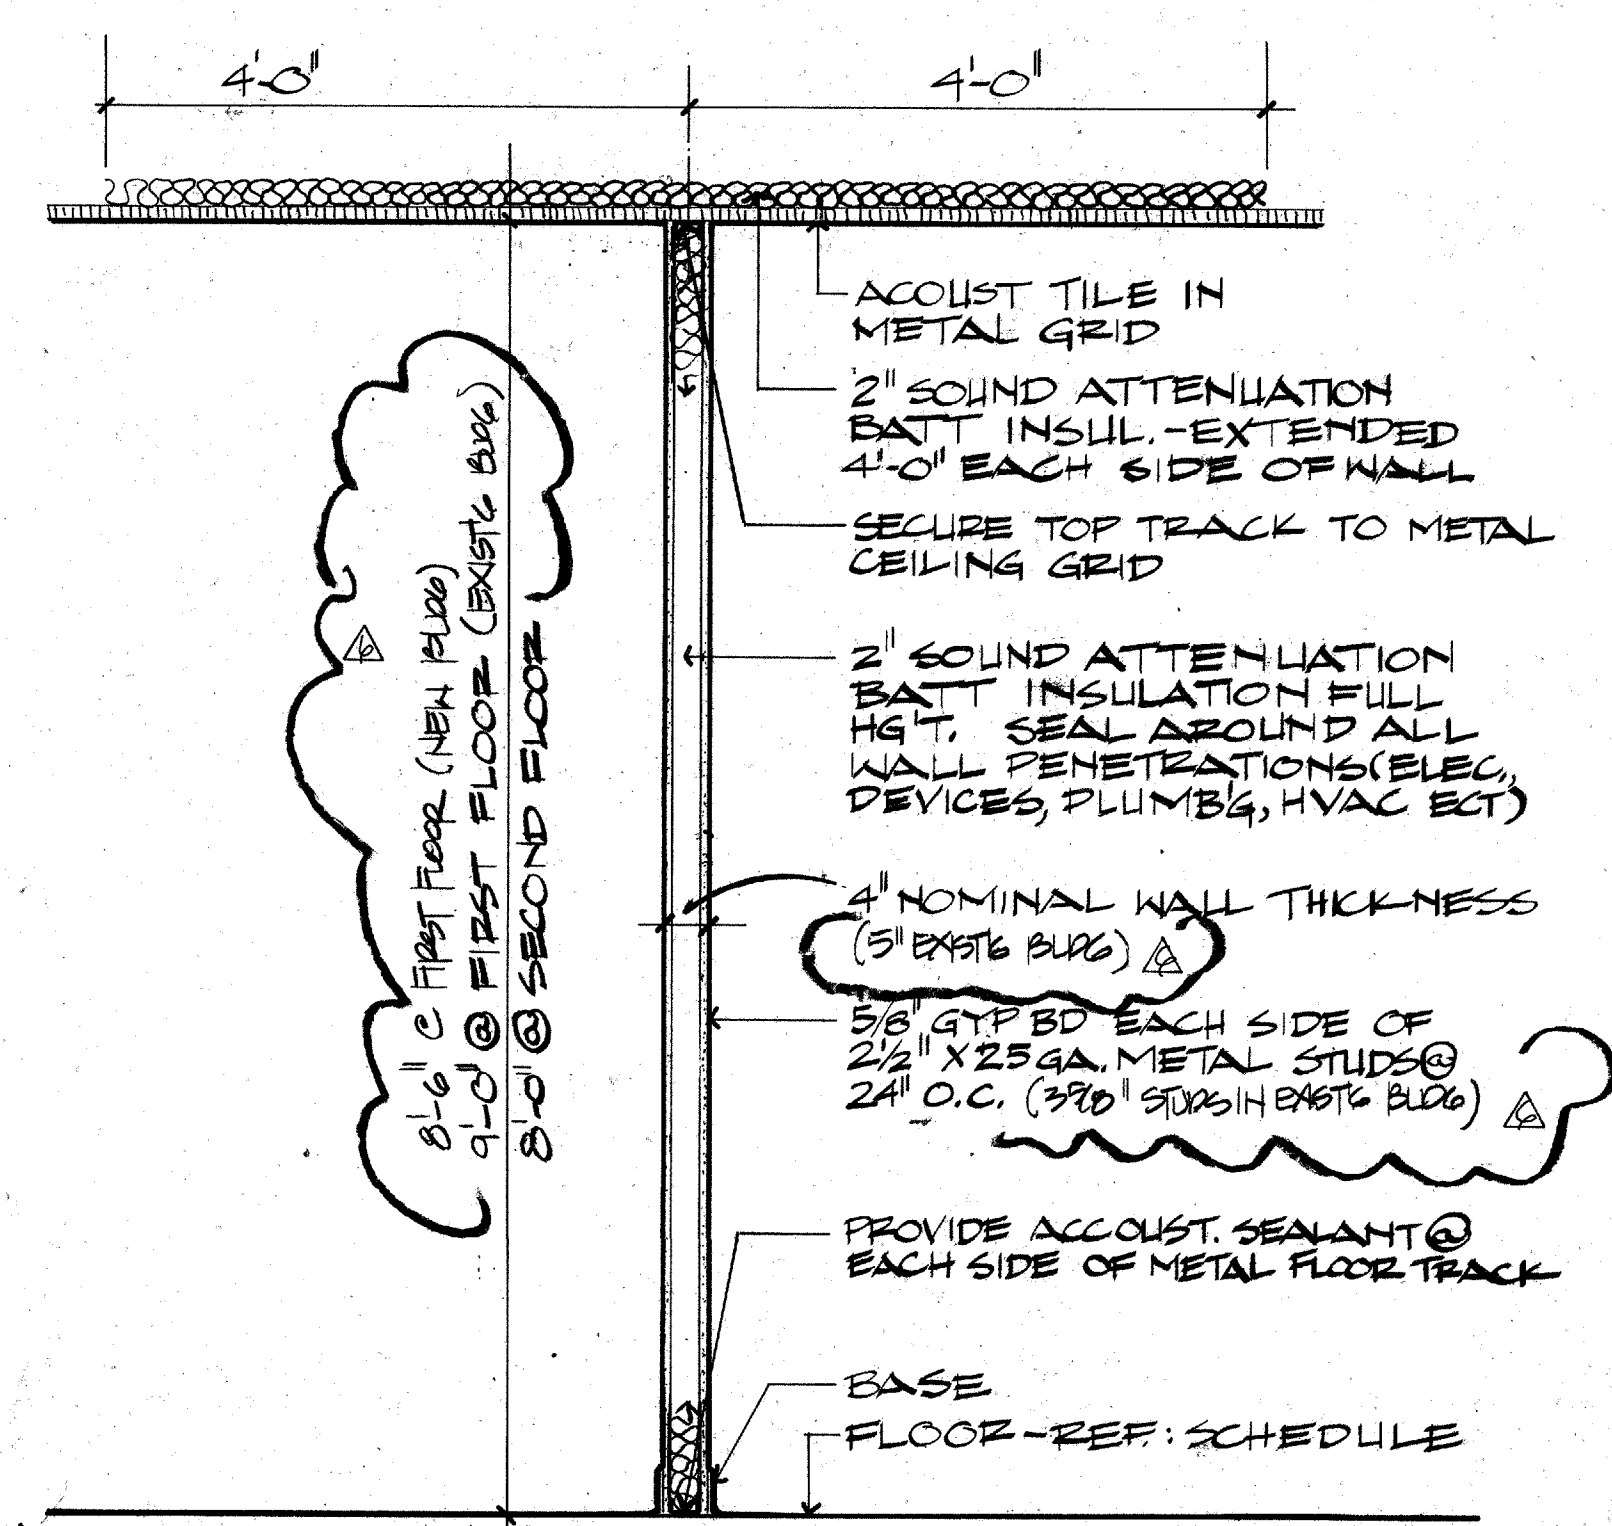 4'-0"
4'-0"
ACOUST TILE IN
METAL GRID
2" SOUND ATTENUATION
BATT INSUL.-EXTENDED
4'-0" EACH SIDE OF WALL
SECURE TOP TRACK TO METAL
CEILING GRID
2" SOUND ATTENUATION
BATT INSULATION FULL
HG'T. SEAL AROUND ALL
WALL PENETRATIONS(ELEC.,
DEVICES, PLUMB'G, HVAC ECT)
4" NOMINAL WALL THICKNESS
(5" EXIST'G BLDG) 6
5/8" GYP BD EACH SIDE OF
2½" X 25 GA. METAL STUDS @
24" O.C. (3 5/8" STUDS IN EXIST'G BLDG) 6
PROVIDE ACCOUST. SEALANT @
EACH SIDE OF METAL FLOOR TRACK
BASE
FLOOR-REF.: SCHEDULE
6
8'-6" @ FIRST FLOOR (NEW BLDG)
9'-0" @ FIRST FLOOR (EXIST'G BLDG)
8'-0" @ SECOND FLOOR